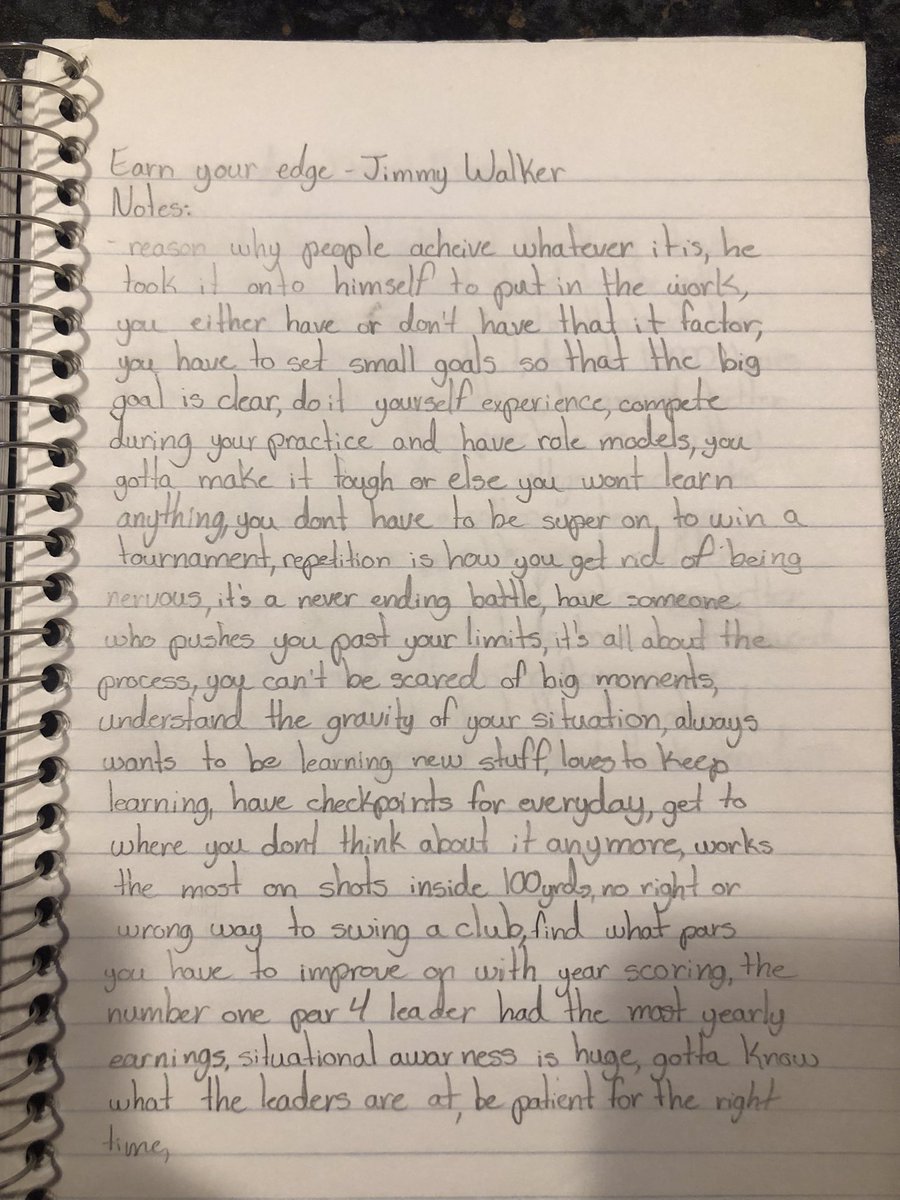 Earn your edge - Jimmy Walker
Notes:
- reason why people acheive whatever it is, he
took it onto himself to put in the work,
you either have or don't have that it factor,
you have to set small goals so that the big
goal is clear, do it yourself experience, compete
during your practice and have role models, you
gotta make it tough or else you wont learn
anything, you dont have to be super on, to win a
tournament, repetition is how you get rid of being
nervous, it's a never ending battle, have someone
who pushes you past your limits, it's all about the
process, you can't be scared of big moments,
understand the gravity of your situation, always
wants to be learning new stuff, loves to keep
learning, have checkpoints for everyday, get to
where you dont think about it anymore, works
the most on shots inside 100yrds, no right or
wrong way to swing a club, find what pars
you have to improve on with year scoring, the
number one par 4 leader had the most yearly
earnings, situational awarness is huge, gotta know
what the leaders are at, be patient for the right
time,